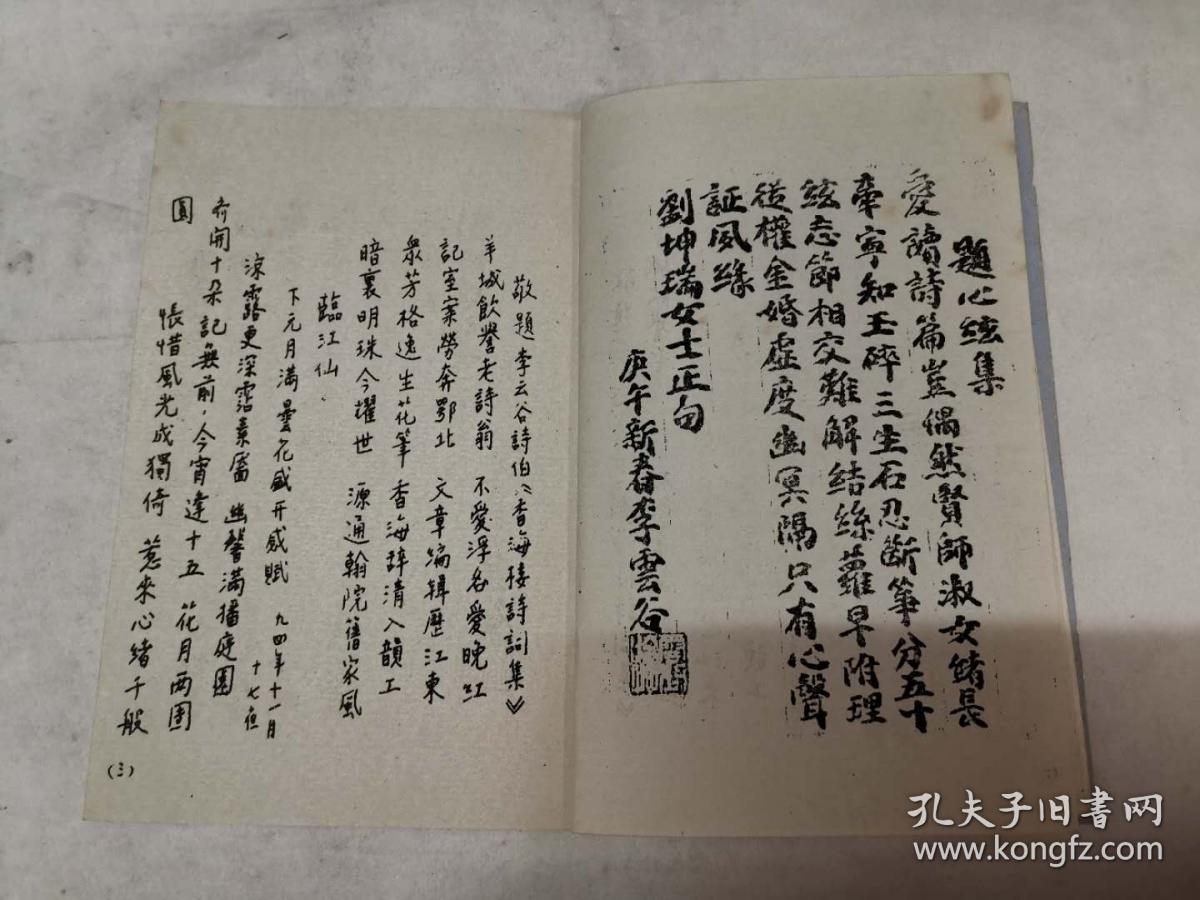 題心絃集
愛讀詩篇豈偶然賢師淑女緒長
牽寧知玉碎三生石忍斷箏分五十
絃志節相交難解結絲蘿早附理
從權金婚虛度幽冥隔只有心聲
証夙緣
劉坤瑞女士正句
庚午新春李雲谷
敬題李云谷詩伯《香海樓詩詞集》
羊城飲譽老詩翁 不愛浮名愛晚紅
記室案勞奔鄂北 文章编辑歷江東
眾芳格逸生花筆 香海辞清入韻工
暗裏明珠今耀世 源通翰院舊家風
臨江仙
下元月满曇花盛开感賦 九四年十一月
十七夜
涼露更深霑素靥 幽馨满播庭園
齐開十朵記無前，今宵達十五 花月两團
圓
悵惜風光成獨倚 惹來心緒千般
（三）
孔夫子旧书网
www.kongfz.com